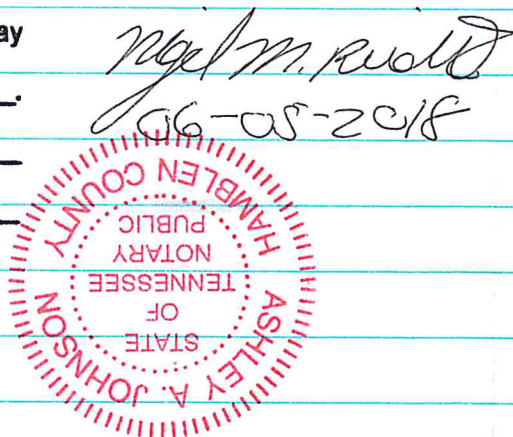 ay
M.
06-05-2018
ASHLEY A. JOHNSON
STATE
OF
TENNESSEE
NOTARY
PUBLIC
HAMBLEN COUNTY